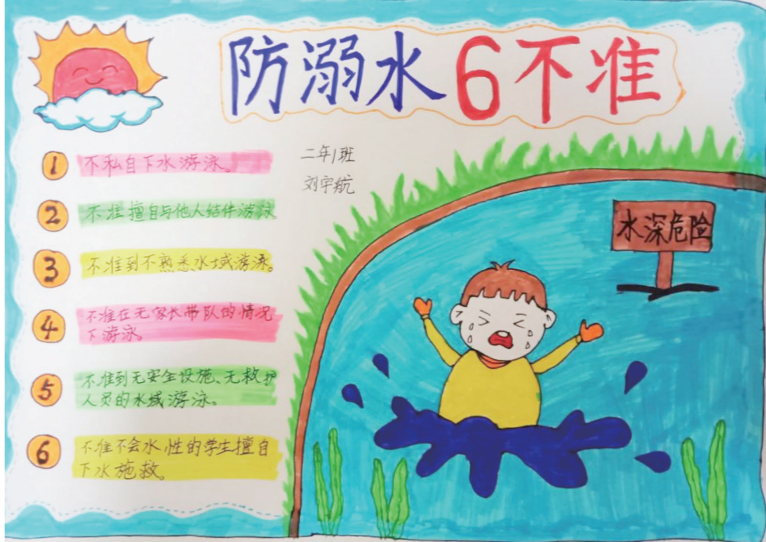 防溺水6不准
二年1班
刘宇航
1 不私自下水游泳。
2 不准擅自与他人结伴游泳
3 不准到不熟悉水域游泳。
4 不准在无家长带队的情况
下游泳
5 不准到无安全设施、无救护
人员的水域游泳。
6 不准不会水性的学生擅自
下水施救。
水深危险